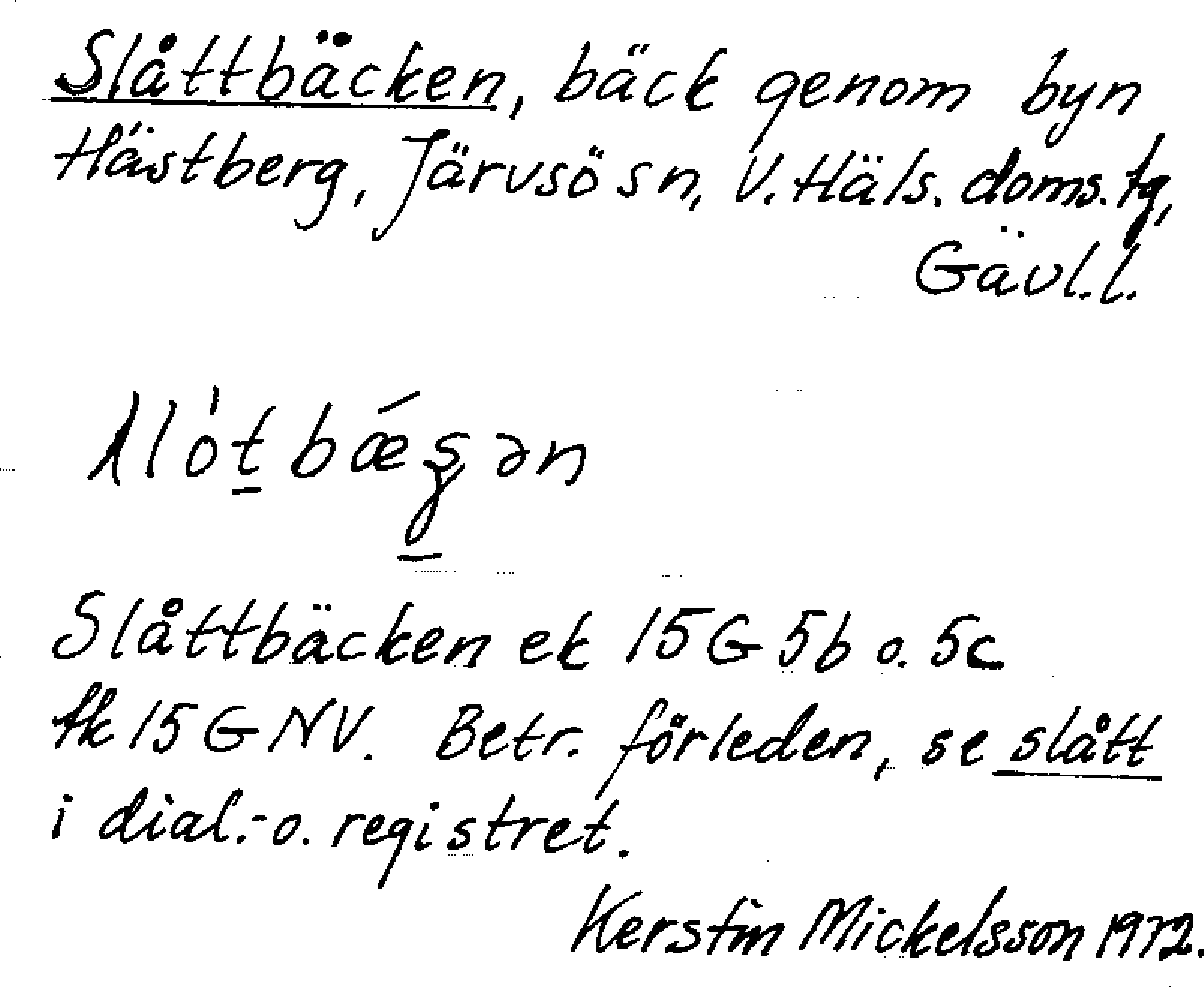 Slåttbäcken, bäck genom byn
Hästberg, Järvsö sn, V. Häls. doms. tg,
Gävl.l.
Slåttbäcken ek 15G 5b o. 5c
tk 15 G NV. Betr. förleden, se slått
i dial.-o. registret.
Kerstin Mickelsson 1972.